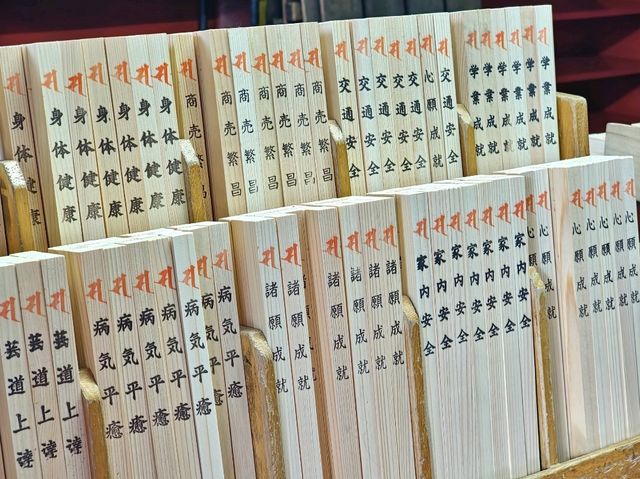 身体健康
身体健康
身体健康
身体健康
身体健康
身体健康
身体健康
商売繁昌
商売繁昌
商売繁昌
商売繁昌
商売繁昌
商売繁昌
商売繁昌
交通安全
交通安全
交通安全
交通安全
交通安全
心願成就
交通安全
学業成就
学業成就
学業成就
学業成就
学業成就
学業成就
芸道上達
芸道上達
芸道上達
病気平癒
病気平癒
病気平癒
病気平癒
病気平癒
病気平癒
病気平癒
諸願成就
諸願成就
諸願成就
諸願成就
諸願成就
諸願成就
家内安全
家内安全
家内安全
家内安全
家内安全
家内安全
家内安全
心願成就
心願成就
心願成就
心願成就
心願成就
心願成就
心願成就